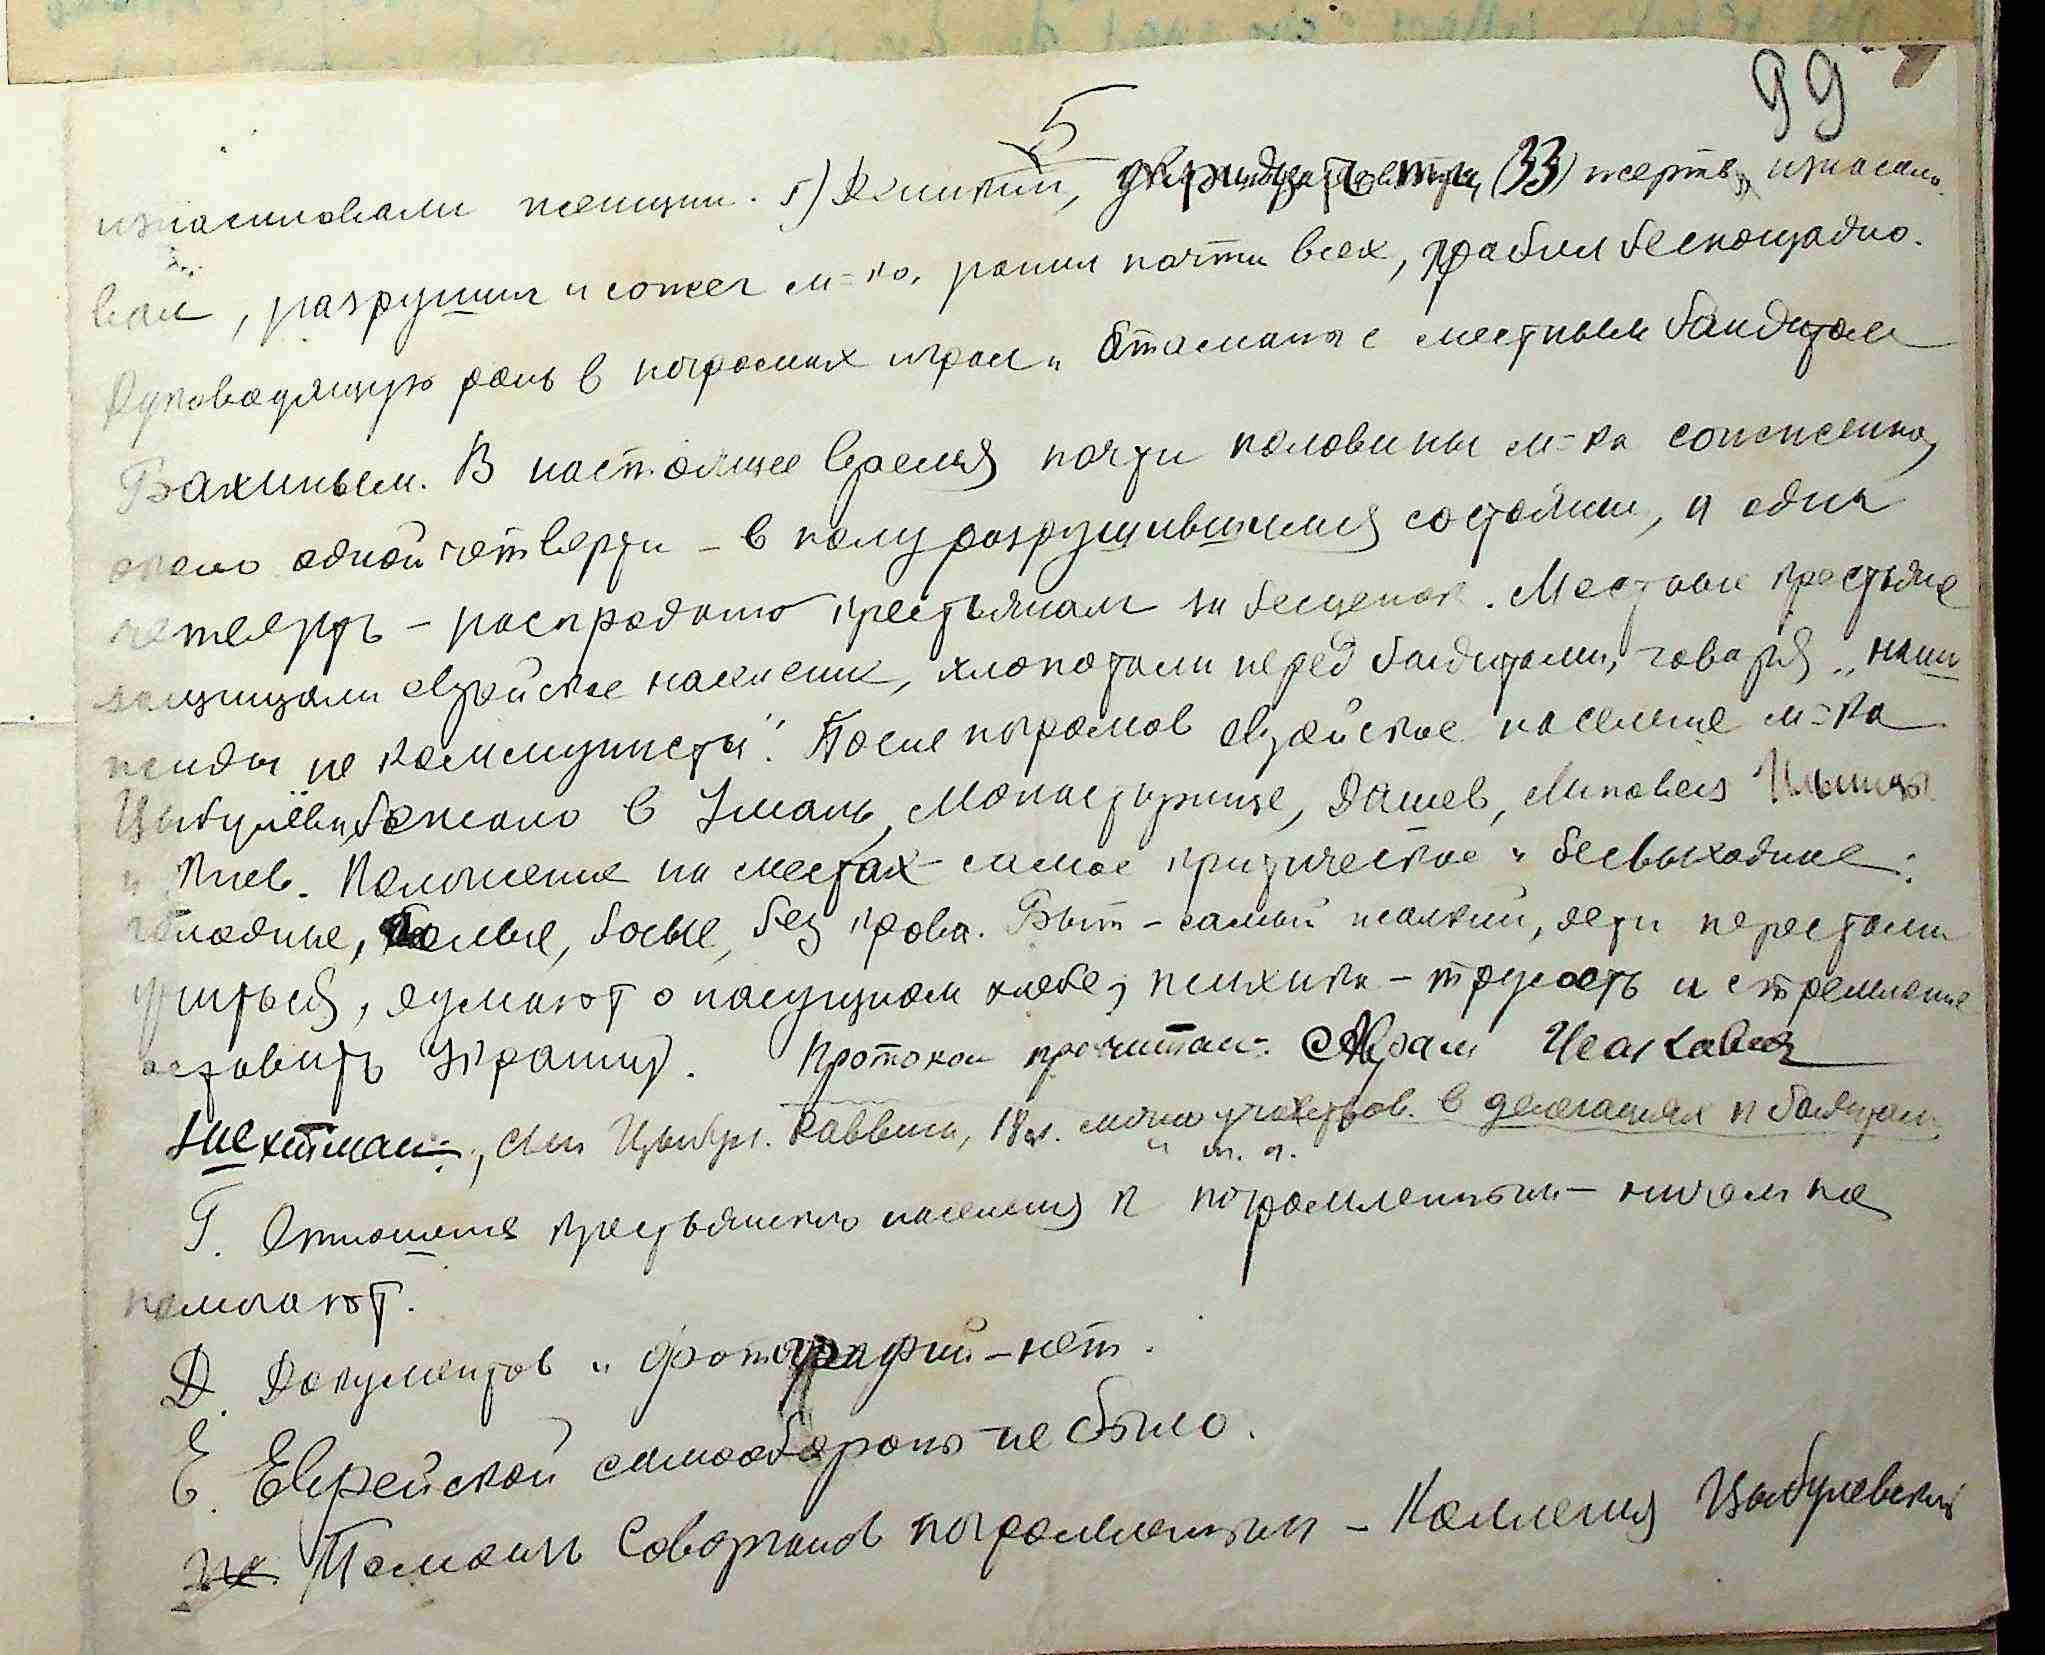 99
5
изнасиловали женщин. 5) Деникин, тридцать три (33) жертв, изнасило-
вал, разрушил и сожег м-ко, ранил почти всех, грабил беспощадно.
Руководящую роль в погромах играл и Атаманы с местным бандитом
Бахиным. В настоящее время почти половины м-ка сожжено,
около одной четверти – в полуразрушившимся состоянии, и одна
четверть – распродано крестьянам за бесценок. Местные крестьяне
защищали еврейское население, хлопотали перед бандитами, говоря „наши
жиды не коммунисты". После погромов еврейское население м-ка
Цыбулёва бежало в Умань, Монастырище, Дашев, Липовец
и Киев. Положение на местах самое критическое и безвыходное:
голодные, голые, босые, без крова. Быт – самый жалкий, дети перестали
учиться, думают о насущном хлебе, психика – трусость и стремление
оставить Украину. Протокол прочитан. Аврам Ицкович
Шехтман, сын Цыбул. раввина, 18 л. лично участвов. в делегациях к бандитам
и т. д.
Г. Отношение крестьянского населения к погромленным – ничем не
помогают.
Д. Документов и фотографий – нет.
Е. Еврейской самообороны не было.
Ж. Помощь Соворганов погромленным – Коллегия Цыбулевский